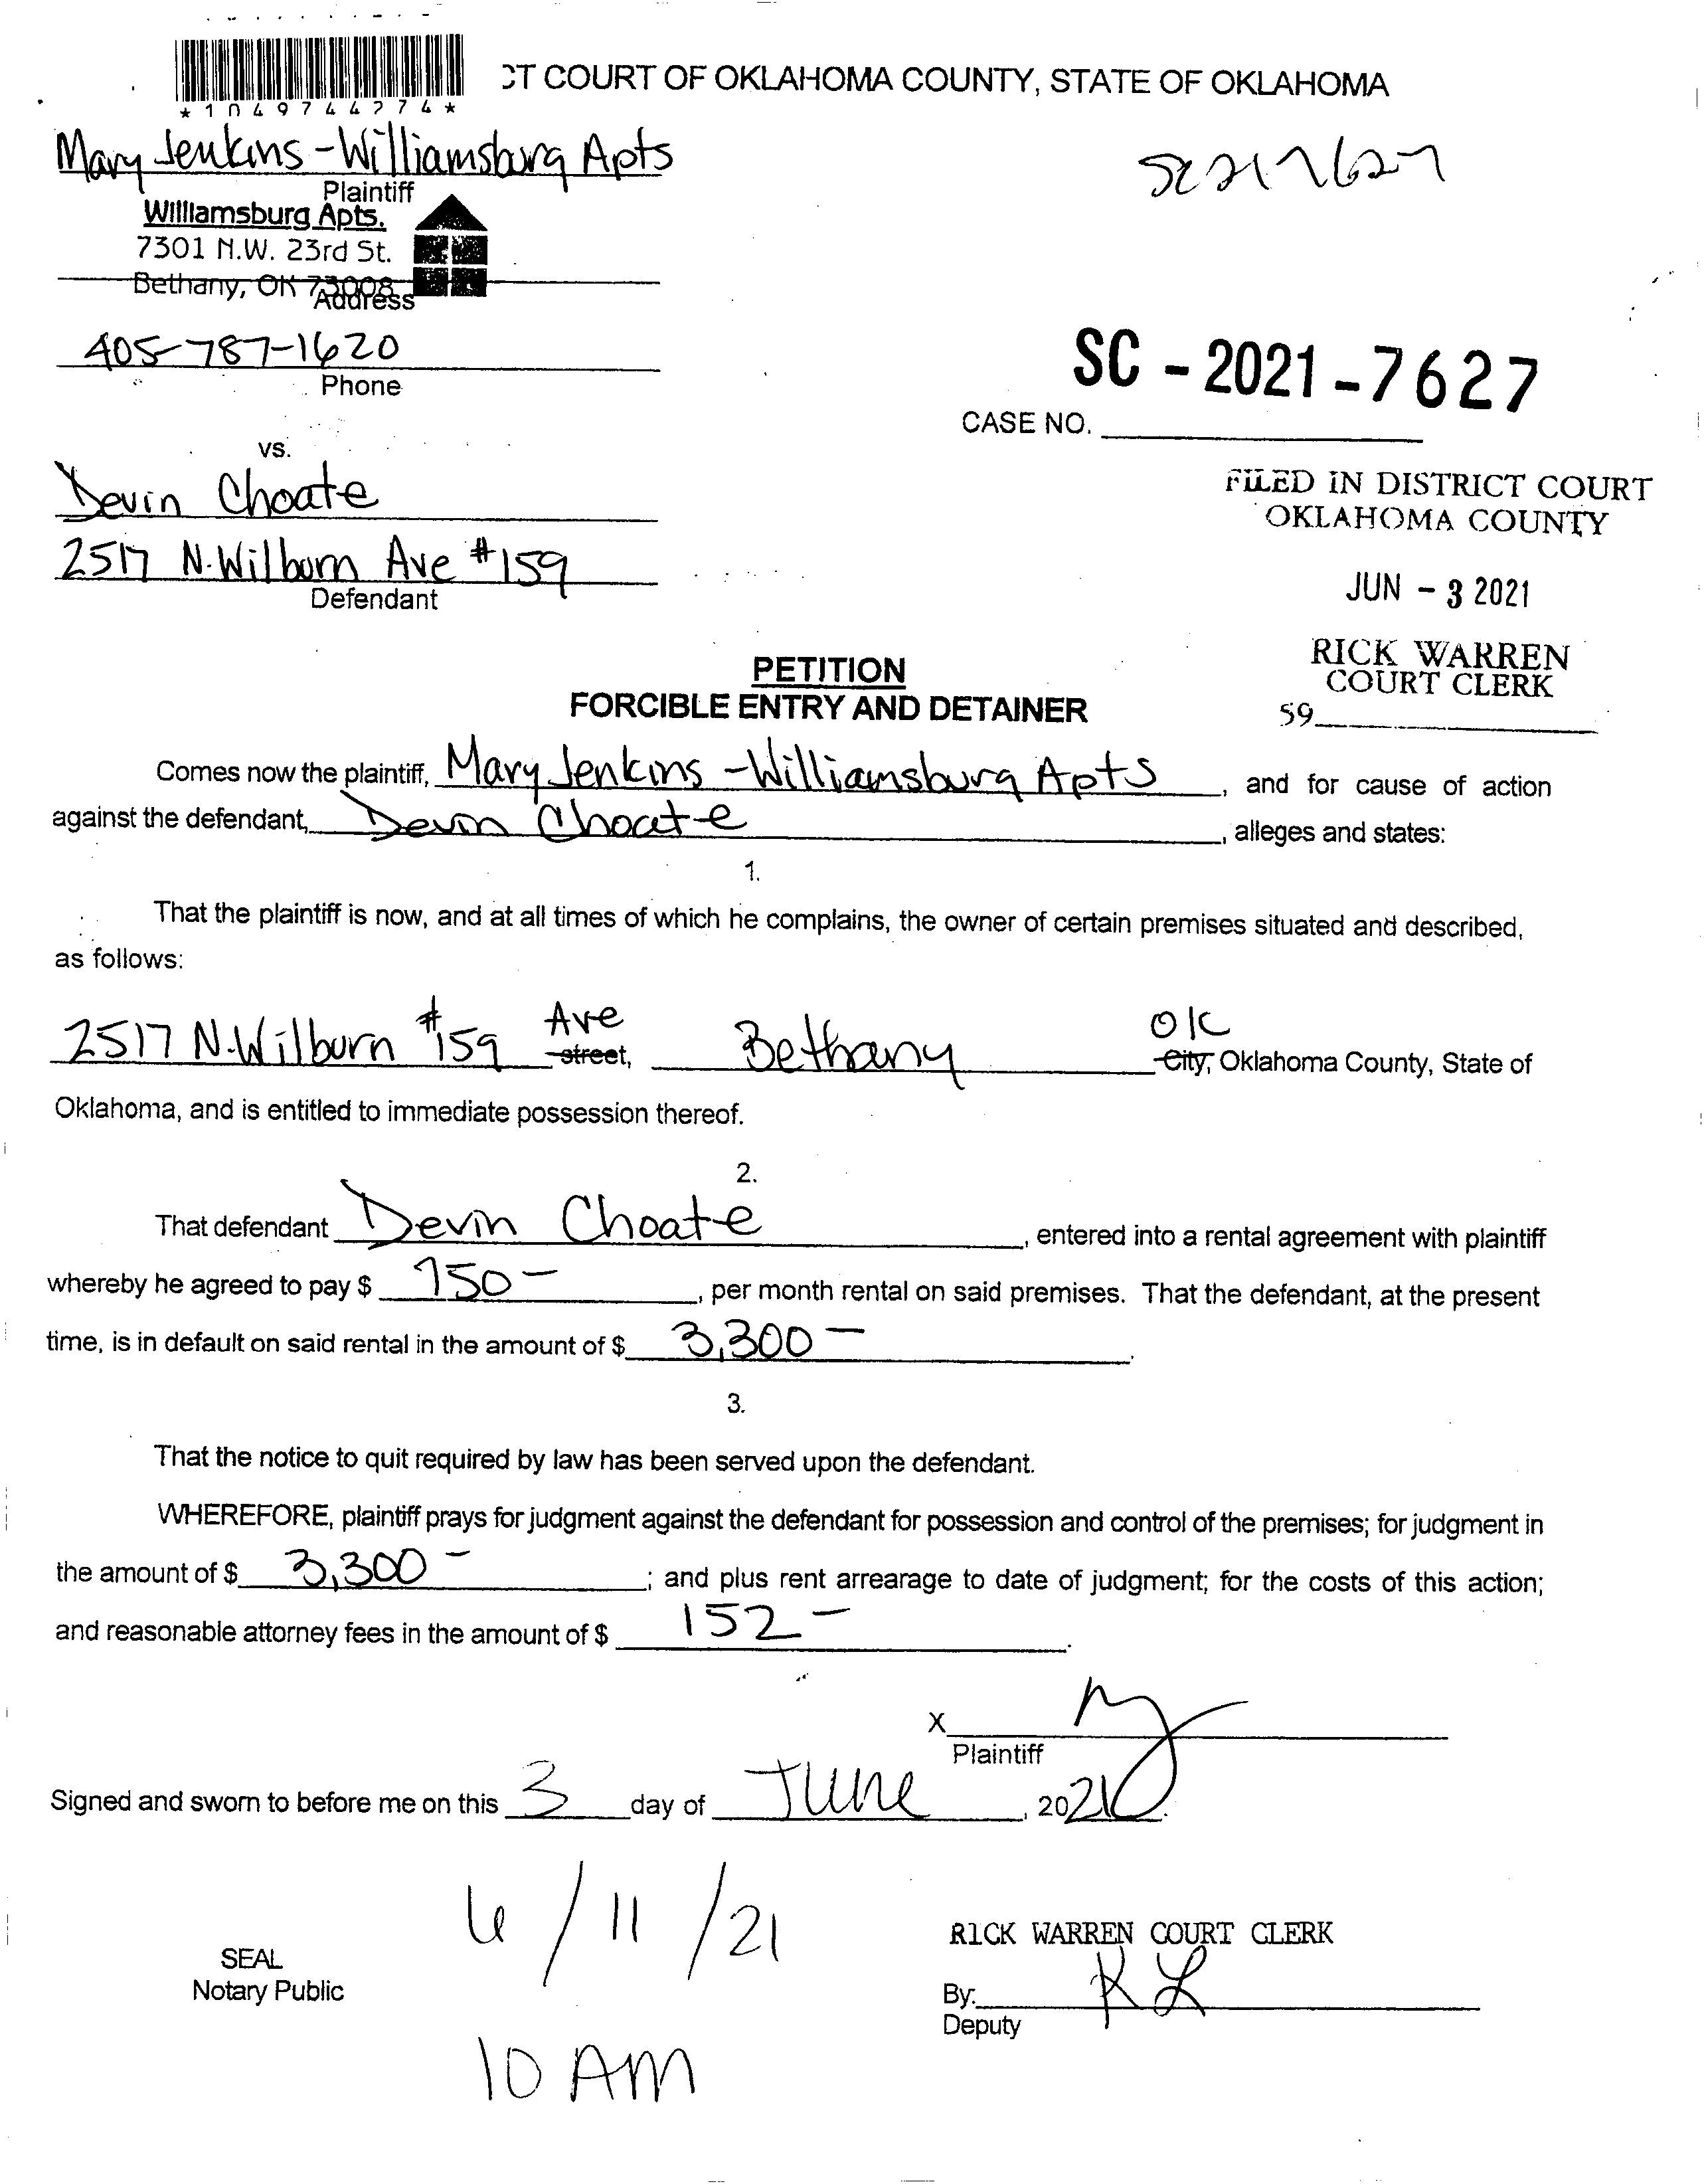 *1049744274*
CT COURT OF OKLAHOMA COUNTY, STATE OF OKLAHOMA
Mary Jenkins - Williamsburg Apts
Plaintiff
Williamsburg Apts.
7301 N.W. 23rd St.
Bethany, OK 73008
Address
405-787-1620
Phone
SC217627
SC - 2021 - 7627
CASE NO.
vs.
Devin Choate
2517 N. Wilburn Ave #159
Defendant
FILED IN DISTRICT COURT
OKLAHOMA COUNTY
JUN - 3 2021
RICK WARREN
COURT CLERK
59
PETITION
FORCIBLE ENTRY AND DETAINER
Comes now the plaintiff, Mary Jenkins - Williamsburg Apts, and for cause of action
against the defendant, Devin Choate, alleges and states:
1.
That the plaintiff is now, and at all times of which he complains, the owner of certain premises situated and described,
as follows:
2517 N. Wilburn #159 Ave street, Bethany OK City, Oklahoma County, State of
Oklahoma, and is entitled to immediate possession thereof.
2.
That defendant Devin Choate, entered into a rental agreement with plaintiff
whereby he agreed to pay $ 750-, per month rental on said premises. That the defendant, at the present
time, is in default on said rental in the amount of $ 3,300-.
3.
That the notice to quit required by law has been served upon the defendant.
WHEREFORE, plaintiff prays for judgment against the defendant for possession and control of the premises; for judgment in
the amount of $ 3,300-; and plus rent arrearage to date of judgment; for the costs of this action;
and reasonable attorney fees in the amount of $ 152-.
X
Plaintiff
Signed and sworn to before me on this 3 day of June, 2021.
6/11/21
10 AM
SEAL
Notary Public
RICK WARREN COURT CLERK
By: KL
Deputy